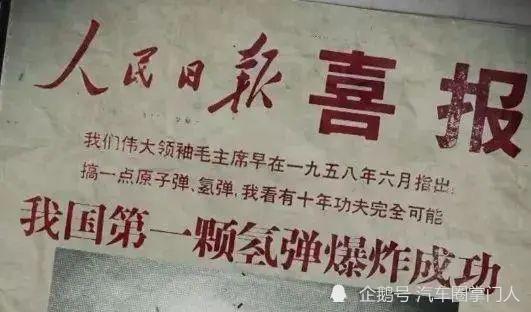 人民日报 喜报
我们伟大领袖毛主席早在一九五八年六月指出:
搞一点原子弹、氢弹,我看有十年功夫完全可能
我国第一颗氢弹爆炸成功
企鹅号 汽车圈掌门人